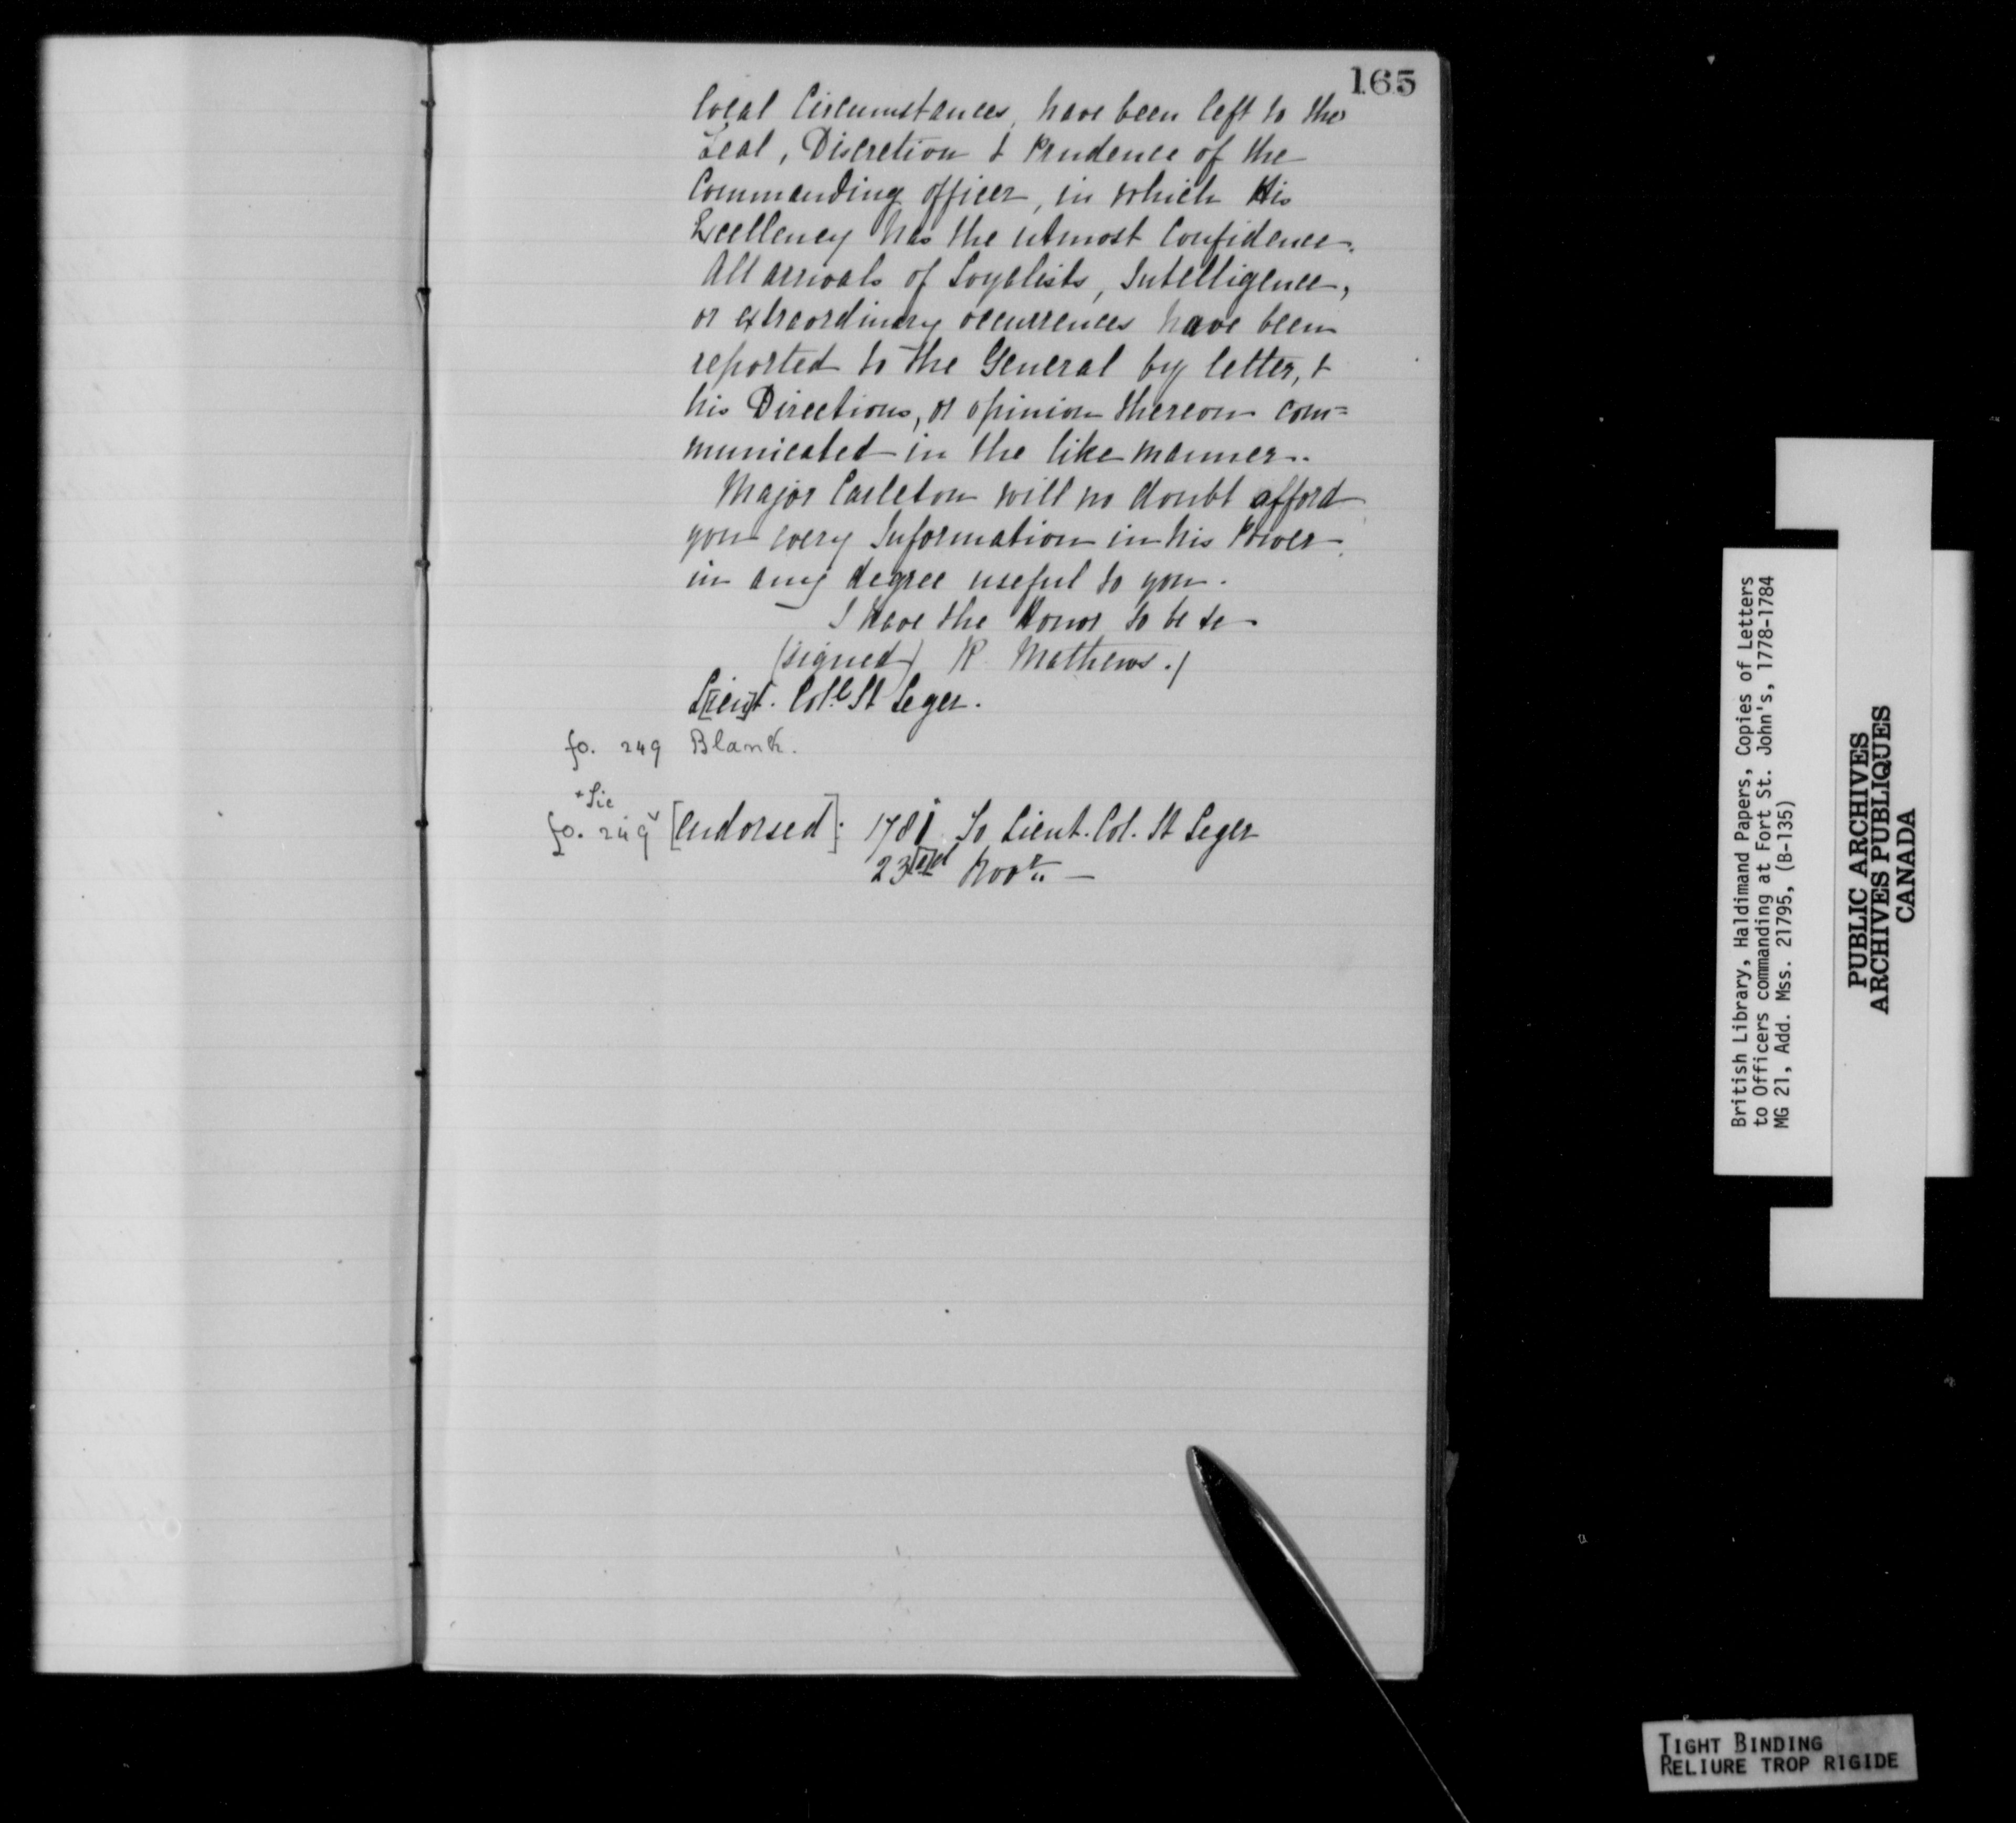 165
local Circumstances, have been left to the
Zeal, Discretion & Prudence of the
Commanding officer, in which His
Excellency has the utmost Confidence.
All arrivals of Loyalists, Intelligence,
or extraordinary occurrences have been
reported to the General by letter, &
his Directions, or opinion thereon com=
municated in the like manner..
Major Carleton will no doubt afford
you every Information in his Power
in any degree useful to you.
I have the Honor to be &c
(signed) R. Mathews./
L[ieu]t. Coll. St Leger.
fo. 249 Blank.
+ Sic
fo. 249v [endorsed]: 1781 To Lieut. Col. St Leger
23[r]d Novr. —
British Library, Haldimand Papers, Copies of Letters
to Officers commanding at Fort St. John's, 1778-1784
MG 21, Add. Mss. 21795, (B-135)
PUBLIC ARCHIVES
ARCHIVES PUBLIQUES
CANADA
TIGHT BINDING
RELIURE TROP RIGIDE